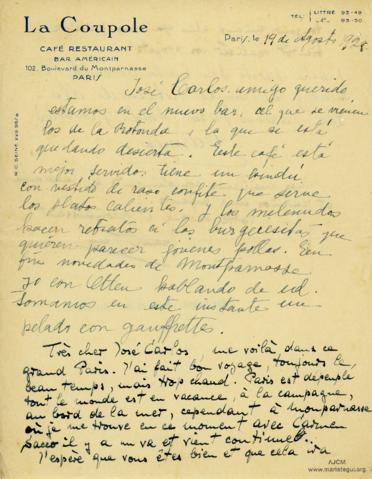 La Coupole
CAFÉ RESTAURANT
BAR AMÉRICAIN
102, Boulevard du Montparnasse
PARIS
TEL: LITTRÉ 95-49
93-50
Paris, le 19 de Agosto 1928
José Carlos, amigo querido
estamos en el nuevo bar, al que se vienen
los de la Rotonda, la que se está
quedando desierta. Este café está
mejor servido: tiene un hindú
con vestido de raso confite que sirve
los platos calientes. Y los melenudos
hacer retratos a las burguesitas que
quieren parecer jóvenes pollas. En
fin novedades de Montparnasse
yo con Ellen hablando de ud.
Tomamos en este instante un
pelado con gauffrette.
Très cher José Carlos me voilà dans ce
grand Paris. J'ai fait bon voyage, toujours le
beau temps, mais trop chaud. Paris est depeuplé
tout le monde est en vacance, à la campagne,
au bord de la mer, cependant à Monparnasse
où je me trouve en ce moment avec Carmen
Sacco il y a un va et vient continuel...
J'espère que vous êtes bien et que cela ira
AJCM
www.mariategui.org